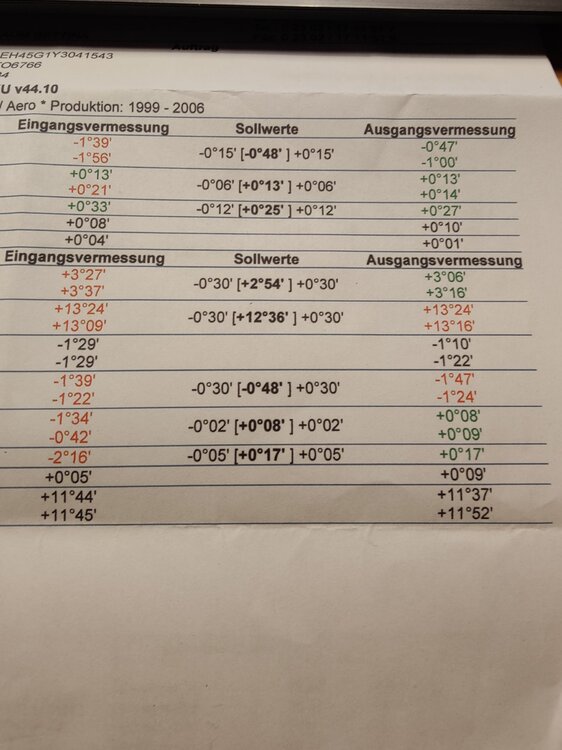 Auftrag
EH45G1Y3041543
O6766
U v44.10
/ Aero * Produktion: 1999 - 2006
Eingangsvermessung Sollwerte Ausgangsvermessung
-1°39' -0°47'
-0°15' [-0°48' ] +0°15'
-1°56' -1°00'
+0°13' +0°13'
-0°06' [+0°13' ] +0°06'
+0°21' +0°14'
+0°33' -0°12' [+0°25' ] +0°12' +0°27'
+0°08' +0°10'
+0°04' +0°01'
Eingangsvermessung Sollwerte Ausgangsvermessung
+3°27' +3°06'
-0°30' [+2°54' ] +0°30'
+3°37' +3°16'
+13°24' +13°24'
-0°30' [+12°36' ] +0°30'
+13°09' +13°16'
-1°29' -1°10'
-1°29' -1°22'
-1°39' -1°47'
-0°30' [-0°48' ] +0°30'
-1°22' -1°24'
-1°34' +0°08'
-0°02' [+0°08' ] +0°02'
-0°42' +0°09'
-2°16' -0°05' [+0°17' ] +0°05' +0°17'
+0°05' +0°09'
+11°44' +11°37'
+11°45' +11°52'